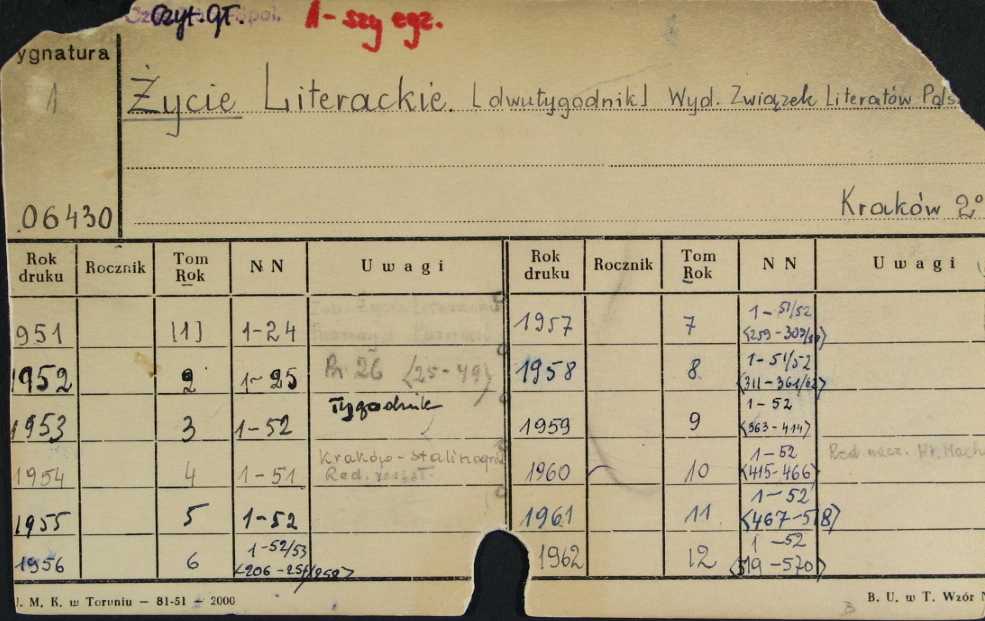 Czyt. gł. 1-szy egz.
ygnatura
1
Życie Literackie. [dwutygodnik] Wyd. Związek Literatów Pols
06430
Kraków 2°
Rok druku Rocznik Tom Rok NN Uwagi Rok druku Rocznik Tom Rok NN Uwagi
951 [1] 1-24
1952 2 1-25 26 <25-49>
1953 3 1-52 Tygodnik
1954 4 1-51 Kraków-Stalinogród Red.
1955 5 1-52
1956 6 1-52/53
1957 7 1-51/52
1958 8 1-51/52 <311-361/62>
1959 9 1-52 <363-414>
1960 10 1-52 <415-466> Red. nacz. Wł. Mach
1961 11 1-52 <467-518>
1962 12 1-52 <519-570>
. M. K. w Toruniu — 81-51 — 2000
B. U. w T. Wzór N